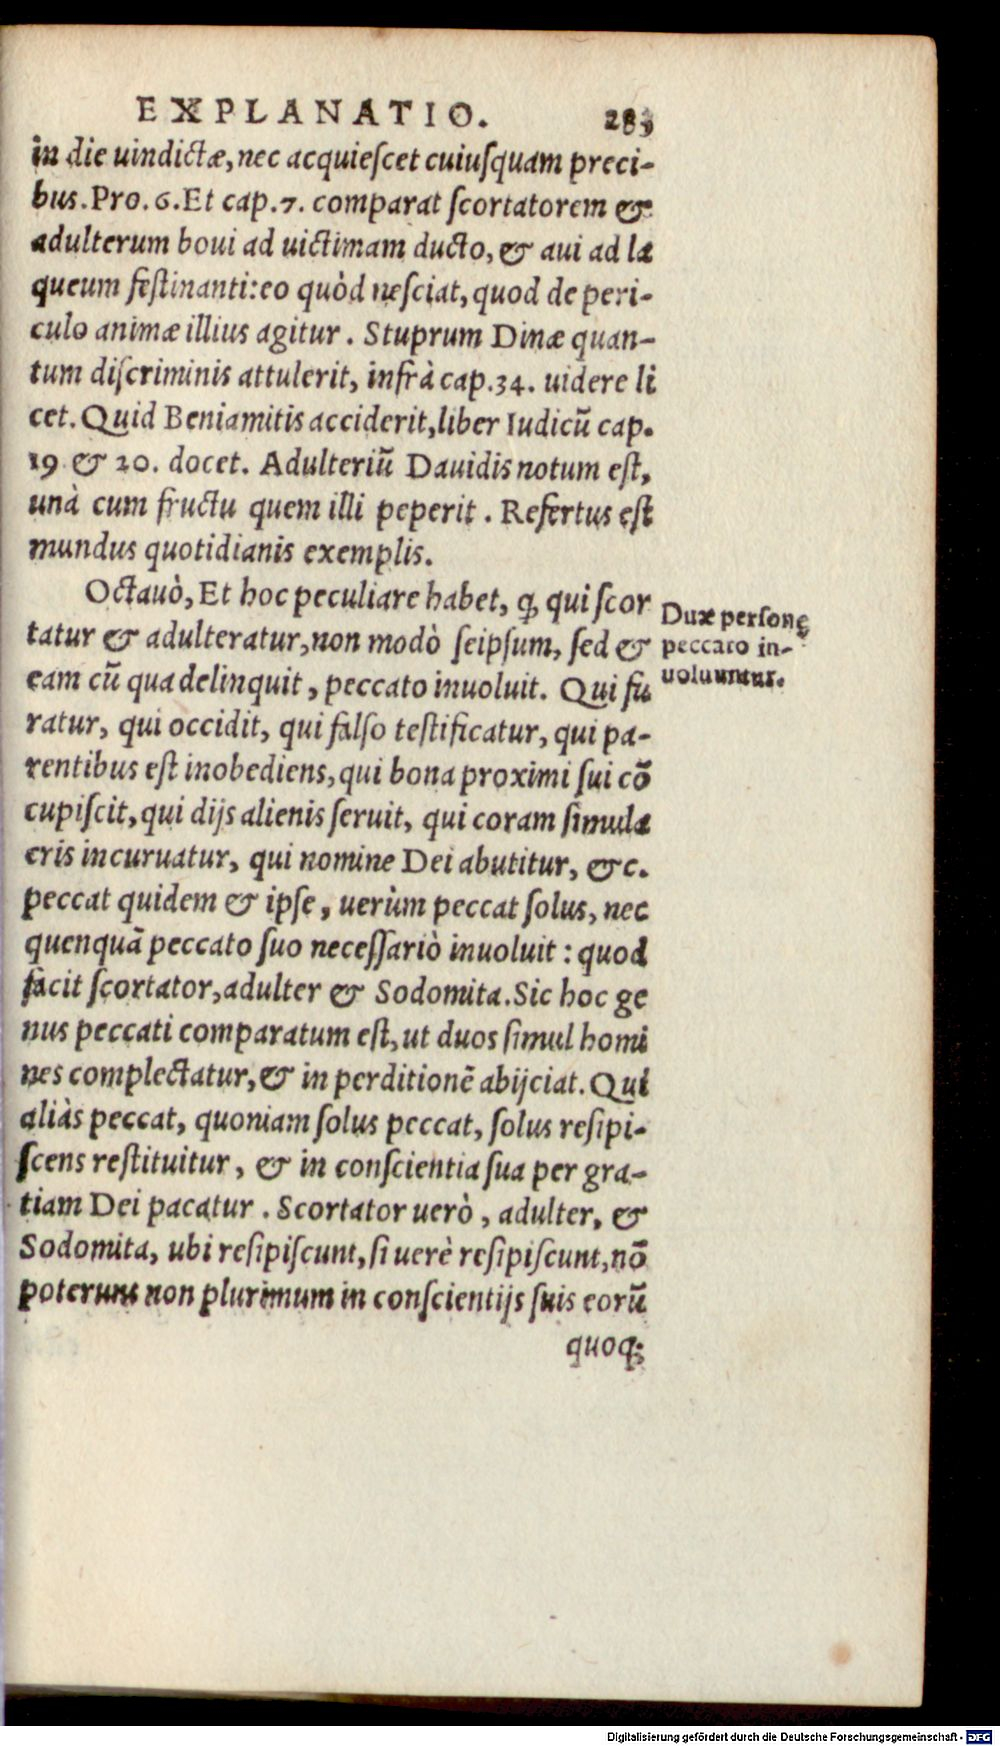 EXPLANATIO. 283
in die uindictæ, nec acquieſcet cuiuſquam preci-
bus. Pro. 6. Et cap. 7. comparat ſcortatorem &
adulterum boui ad uictimam ducto, & aui ad la
queum feſtinanti: eo quòd neſciat, quod de peri-
culo animæ illius agitur. Stuprum Dinæ quan-
tum diſcriminis attulerit, infrà cap. 34. uidere li
cet. Quid Beniamitis acciderit, liber Iudicũ cap.
19 & 20. docet. Adulteriũ Dauidis notum eſt,
unà cum fructu quem illi peperit. Refertus eſt
mundus quotidianis exemplis.
Octauò, Et hoc peculiare habet, ꝙ qui ſcor
tatur & adulteratur, non modò ſeipſum, ſed &
eam cũ qua delinquit, peccato inuoluit. Qui fu
ratur, qui occidit, qui falſo teſtificatur, qui pa-
rentibus eſt inobediens, qui bona proximi ſui cõ
cupiſcit, qui dijs alienis ſeruit, qui coram ſimula
cris incuruatur, qui nomine Dei abutitur, &c.
peccat quidem & ipſe, uerùm peccat ſolus, nec
quenquã peccato ſuo neceſſariò inuoluit: quod
facit ſcortator, adulter & Sodomita. Sic hoc ge
nus peccati comparatum eſt, ut duos ſimul homi
nes complectatur, & in perditionẽ abijciat. Qui
aliàs peccat, quoniam ſolus peccat, ſolus reſipi-
ſcens reſtituitur, & in conſcientia ſua per gra-
tiam Dei pacatur. Scortator uerò, adulter, &
Sodomita, ubi reſipiſcunt, ſi uerè reſipiſcunt, nõ
poterunt non plurimum in conſcientijs ſuis eorũ
quoq;
Duæ perſonę
peccato in-
uoluuntur.
Digitalisierung gefördert durch die Deutsche Forschungsgemeinschaft - DFG